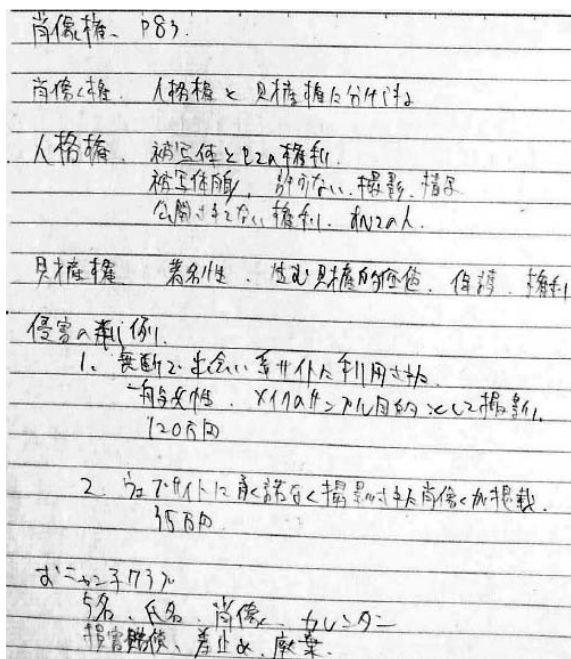 肖像権、P83.
肖像権. 人格権と財産権に分けれる
人格権、被写体としての権利.
被写体, 許可ない、撮影、描写
公開されない権利. すべての人.
財産権 著名性、生む財産的価値、保護、権利
侵害の判例.
1. 無断で出会い系サイトに利用された.
一般女性. メイクのサンプル目的として撮影.
120万円
2. ウェブサイトに承諾なく撮影された肖像が掲載.
35万円
おニャン子クラブ
5名、氏名、肖像、カレンダー
損害賠償、差止め、廃棄.